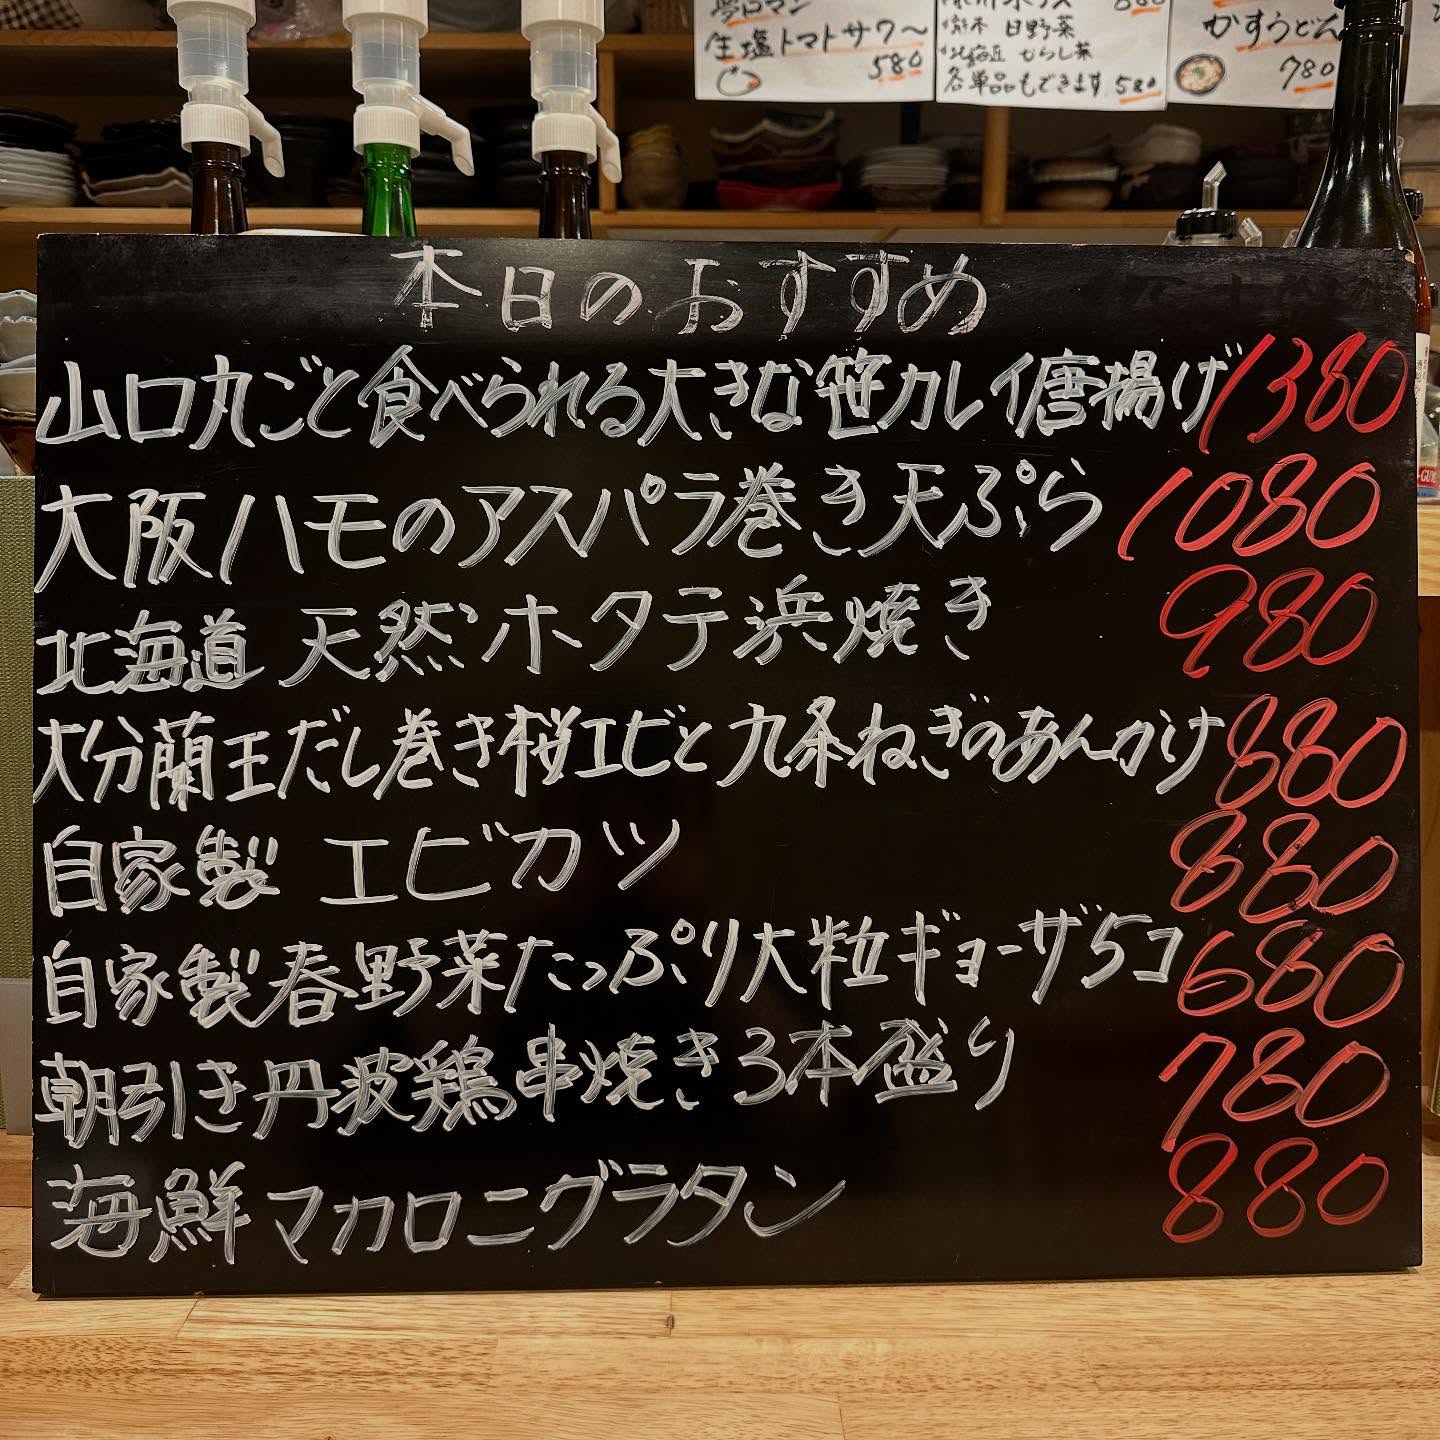 生塩トマトサワ〜
580
日野菜
各単品もできます 580
かすうどん
780
本日のおすすめ
山口丸ごと食べられる大きな笹カレイ唐揚げ 1380
大阪ハモのアスパラ巻き天ぷら 1080
北海道 天然ホタテ浜焼き 980
大分蘭王だし巻き桜エビと九条ねぎのあんかけ 880
自家製 エビカツ 880
自家製春野菜たっぷり大粒ギョーザ5コ 680
朝引き丹波鶏串焼き3本盛り 780
海鮮マカロニグラタン 880